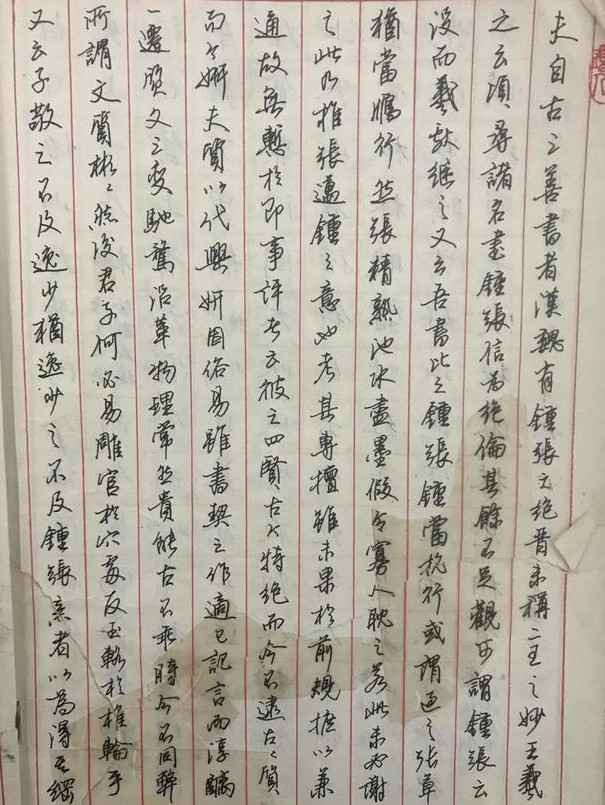 夫自古之善書者漢魏有鍾張之絕晉末稱二王之妙王羲
之云頃尋諸名書鍾張信為絕倫其餘不足觀可謂鍾張云
沒而羲獻繼之又云吾書比之鍾張鍾當抗行或謂過之張草
猶當鴈行然張精熟池水盡墨假令寡人耽之若此未必謝
之此乃推張邁鍾之意也考其專擅雖未果於前規摭以兼
通故無慙於即事評者云彼之四賢古今特絕而今不逮古〻質
而今妍夫質以代興妍因俗易雖書契之作適以記言而淳醨
一遷質文三變馳騖沿革物理常然貴能古不乖時今不同弊
所謂文質彬〻然後君子何必易雕宮於穴處反玉輅於椎輪乎
又云子敬之不及逸少猶逸少之不及鍾張意者以為得其綱